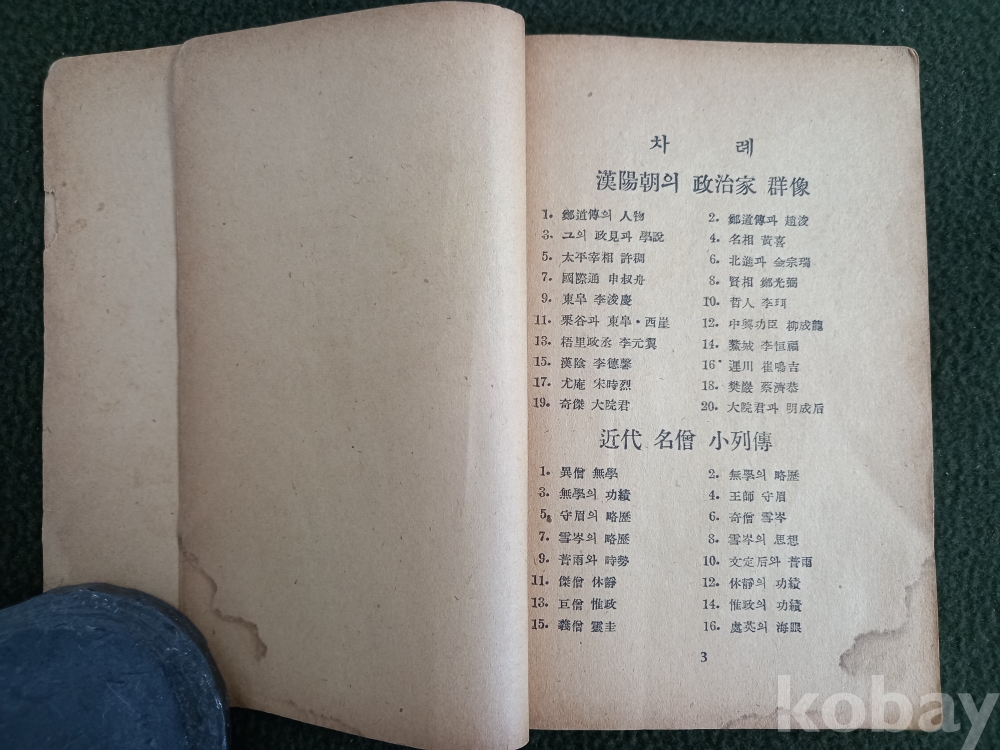 차 례
漢陽朝의 政治家 群像
1. 鄭道傳의 人物 2. 鄭道傳과 趙浚
3. 그의 政見과 學說 4. 名相 黃喜
5. 太平宰相 許稠 6. 北進과 金宗瑞
7. 國際通 申叔舟 8. 賢相 鄭光弼
9. 東皐 李浚慶 10. 哲人 李珥
11. 栗谷과 東皐·西崖 12. 中興功臣 柳成龍
13. 梧里政丞 李元翼 14. 鰲城 李恒福
15. 漢陰 李德馨 16. 遲川 崔鳴吉
17. 尤庵 宋時烈 18. 樊巖 蔡濟恭
19. 奇傑 大院君 20. 大院君과 明成后
近代 名僧 小列傳
1. 異僧 無學 2. 無學의 略歷
3. 無學의 功績 4. 王師 守眉
5. 守眉의 略歷 6. 奇僧 雪岑
7. 雪岑의 略歷 8. 雪岑의 思想
9. 普雨와 時勢 10. 文定后와 普雨
11. 傑僧 休靜 12. 休靜의 功績
13. 巨僧 惟政 14. 惟政의 功績
15. 義僧 靈圭 16. 處英의 海眼
3
kobay